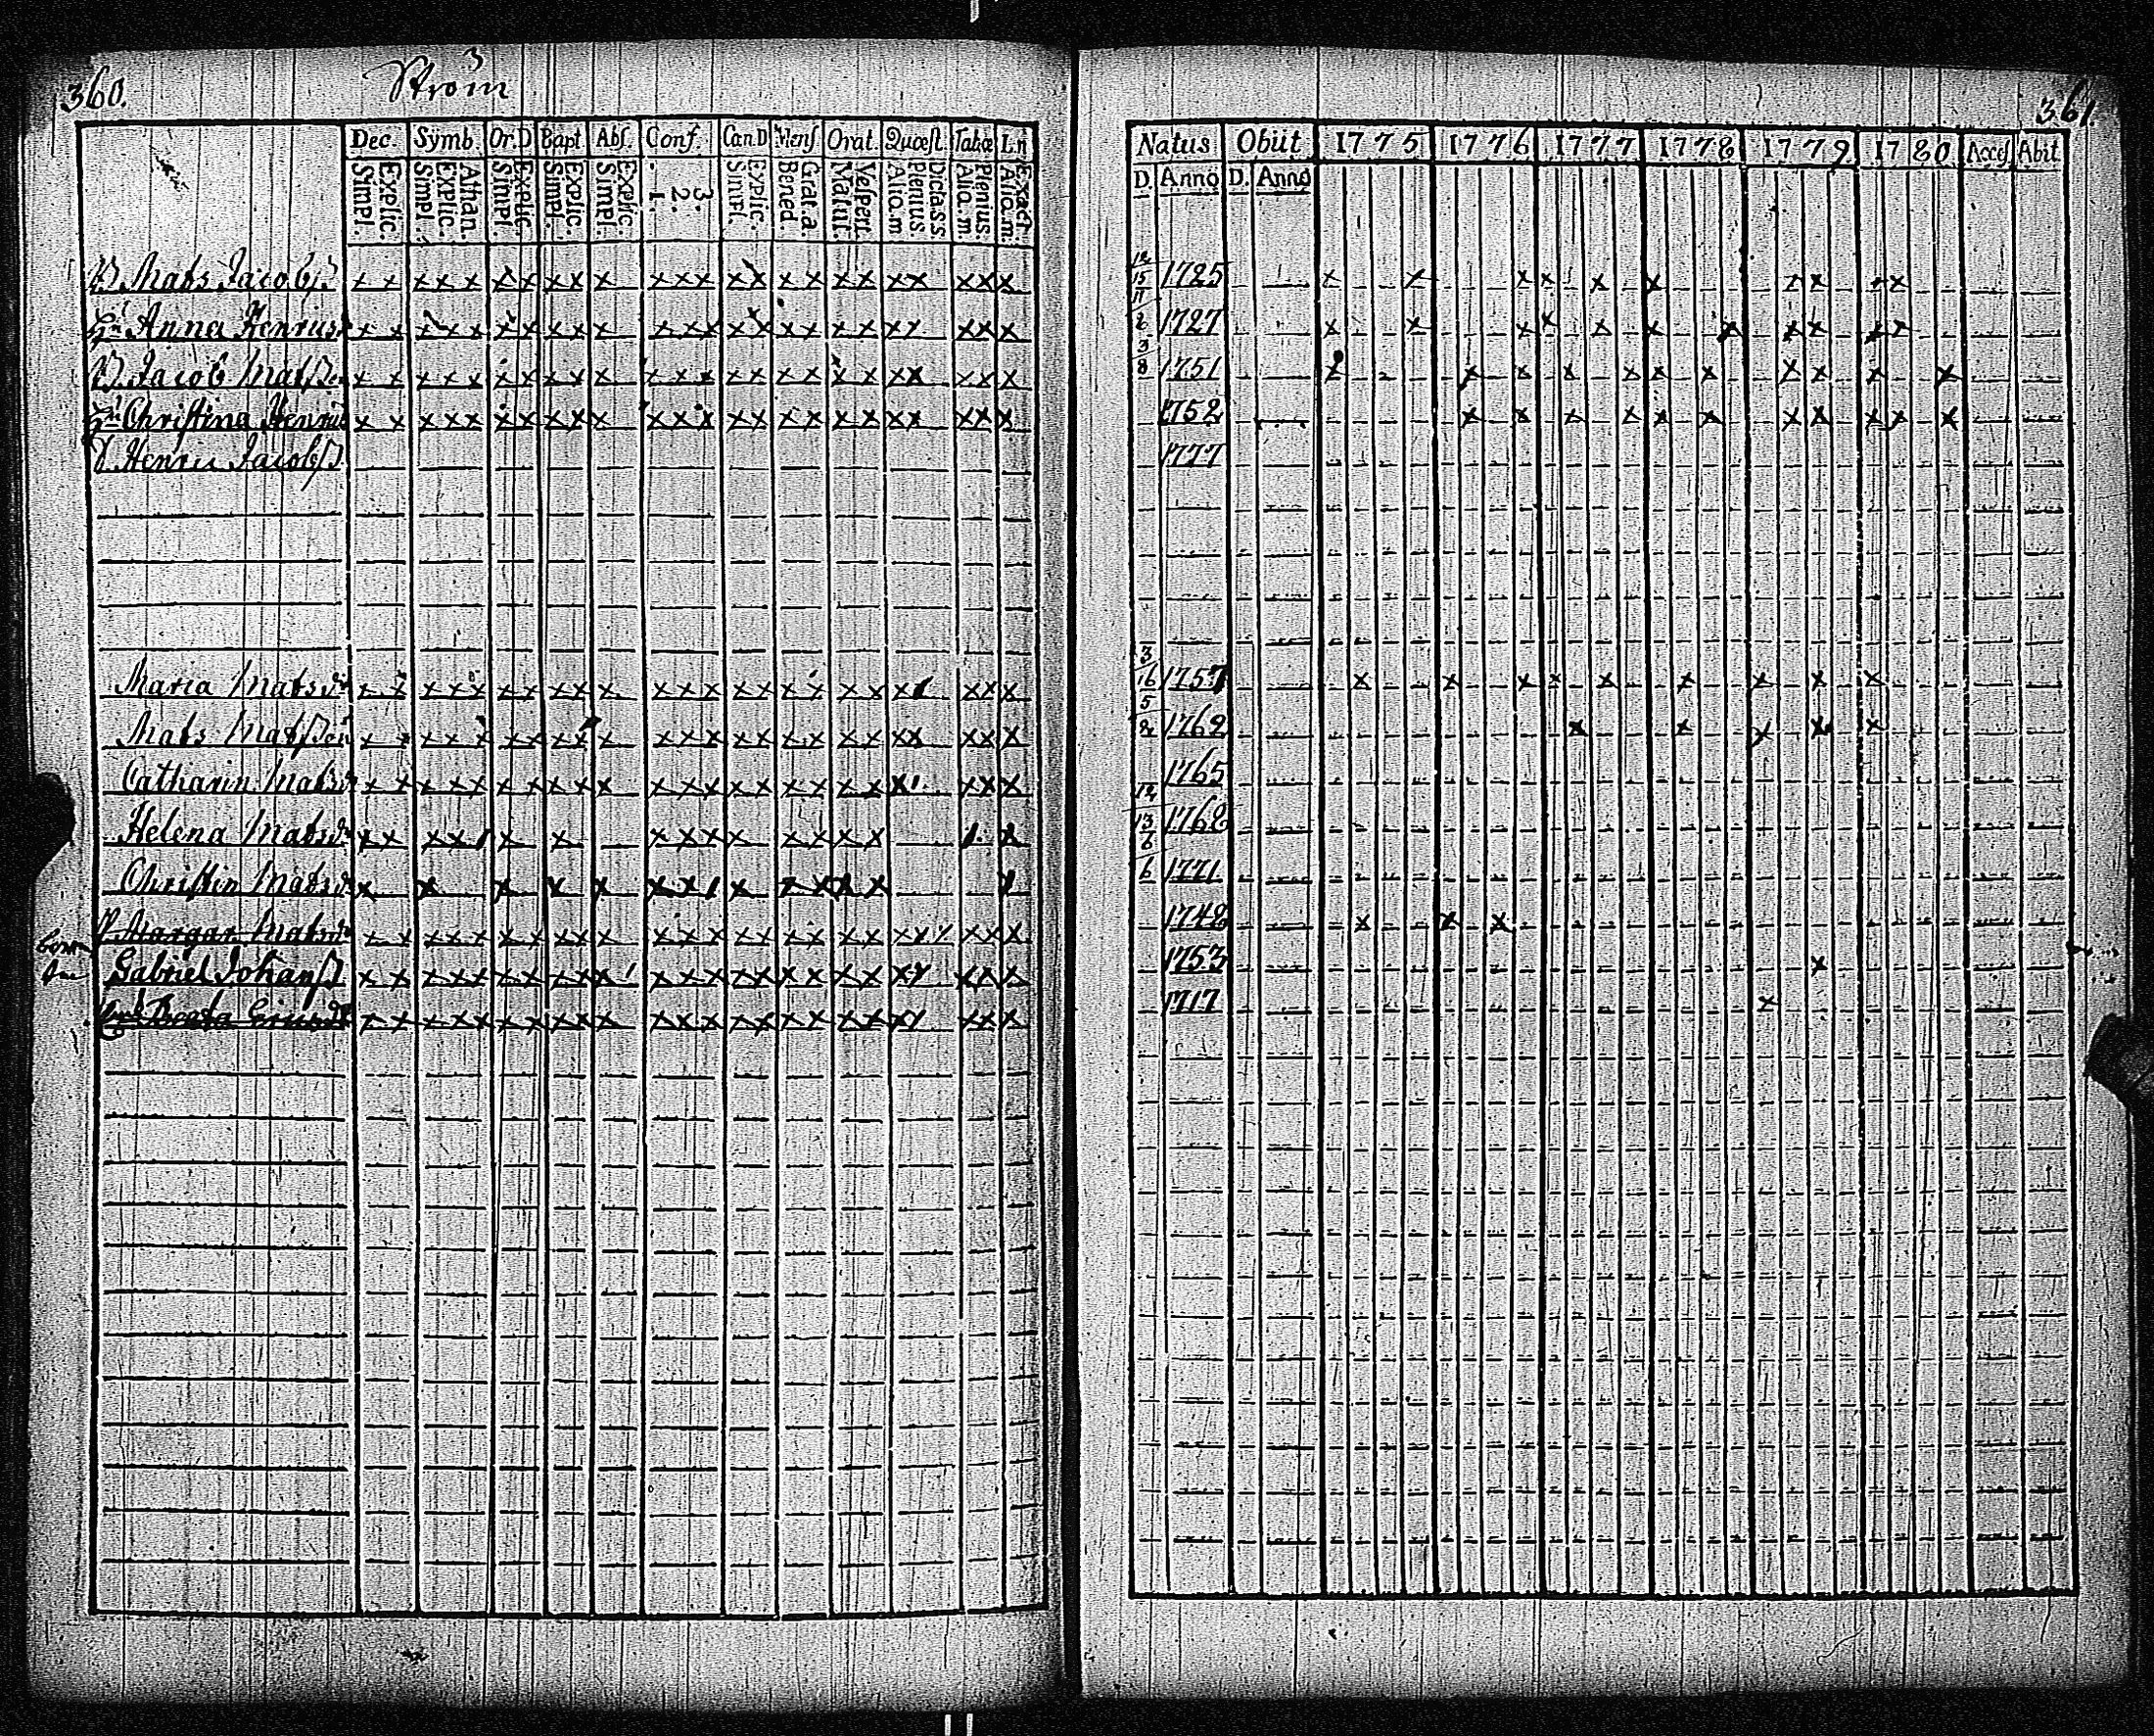 360.
Ström
Dec. Symb. Or.D Bapt Abs. Conf. Can.D Mens. Orat. Quæst. Tabæ L.n
Simpl. Explic. Simpl. Explic. Athan. Simpl. Explic. Simpl. Explic. Simpl. Explic. 1. 2. 3. Simpl. Explic. Bened. Grat.a Matut. Vespert. Alio.m Plenius Dicta.s.s. Alio.m Plenius. Alio.m. Exact.
Mats Jacobs. x x x x x x x x x x x x x x x x x x x x x x x
Anna Henrics x x x x x x x x x x x x x x x x x x x x x x x
Jacob Matsson x x x x x x x x x x x x x x x x x x x x x x x
Christina Henrics x x x x x x x x x x x x x x x x x x x x x x x
Henric Jacobs.
Maria Matsdr x x x x x x x x x x x x x x x x x x x x x x
Mats Matsson x x x x x x x x x x x x x x x x x x x x x x x
Catharin Matsdr x x x x x x x x x x x x x x x x x x x x x x
Helena Matsdr x x x x x x x x x x x x x x x
Christin Matsdr x x x x x x x x x x x x
Margar Matsdr x x x x x x x x x x x x x x x x x x x x x x x
Gabriel Johans. x x x x x x x x x x x x x x x x x x x x x x x
Beata Ericsdr x x x x x x x x x x x x x x x x x x x x x x x
361
Natus Obiit 1775 1776 1777 1778 1779 1780 Acces Abit
D. Anno D. Anno
1725 x x x x x x x x x x
1727 x x x x x x x x x x x
3/8 1751 x x x x x x x x x x x
1752 x x x x x x x x x x x
1777
3/16 1757 x x x x x x x x x
5/2 1762 x x x x x
1765
12/13 1768
6/6 1771
1748 x x x
1753 x
1717 x